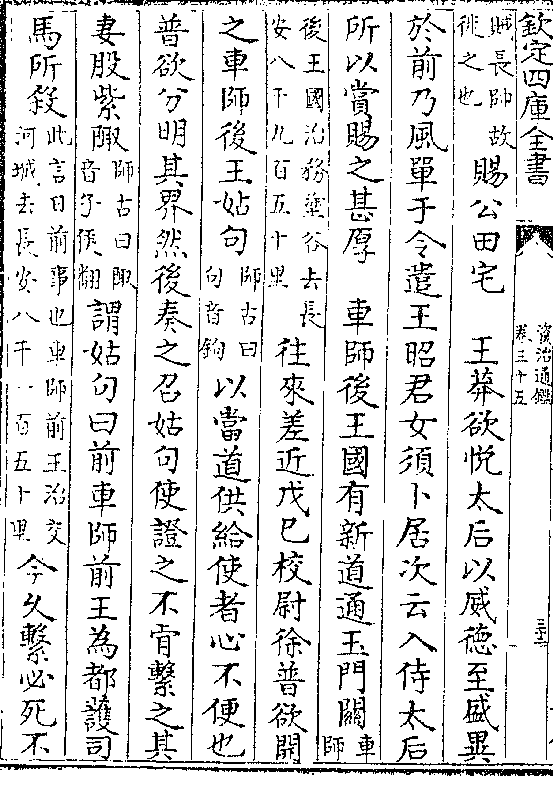 欽定四庫全書
資治通鑑
卷三十五
賊長帥故
徙之也賜公田宅　王莽欲悅太后以威德至盛異
於前乃風單于令遣王昭君女須卜居次云入侍太后
所以賞賜之甚厚　車師後王國有新道通玉門關車師
後王國治務塗谷去長
安八千九百五十里往來差近戊己校尉徐普欲開
之車師後王姑句師古曰
句音鉤以當道供給使者心不便也
普欲分明其界然後奏之召姑句使證之不肯繫之其
妻股紫陬師古曰陬
音子侯翻謂姑句曰前車師前王為都護司
馬所殺此言日前事也車師前王治交
河城去長安八千一百五十里今久繫必死不